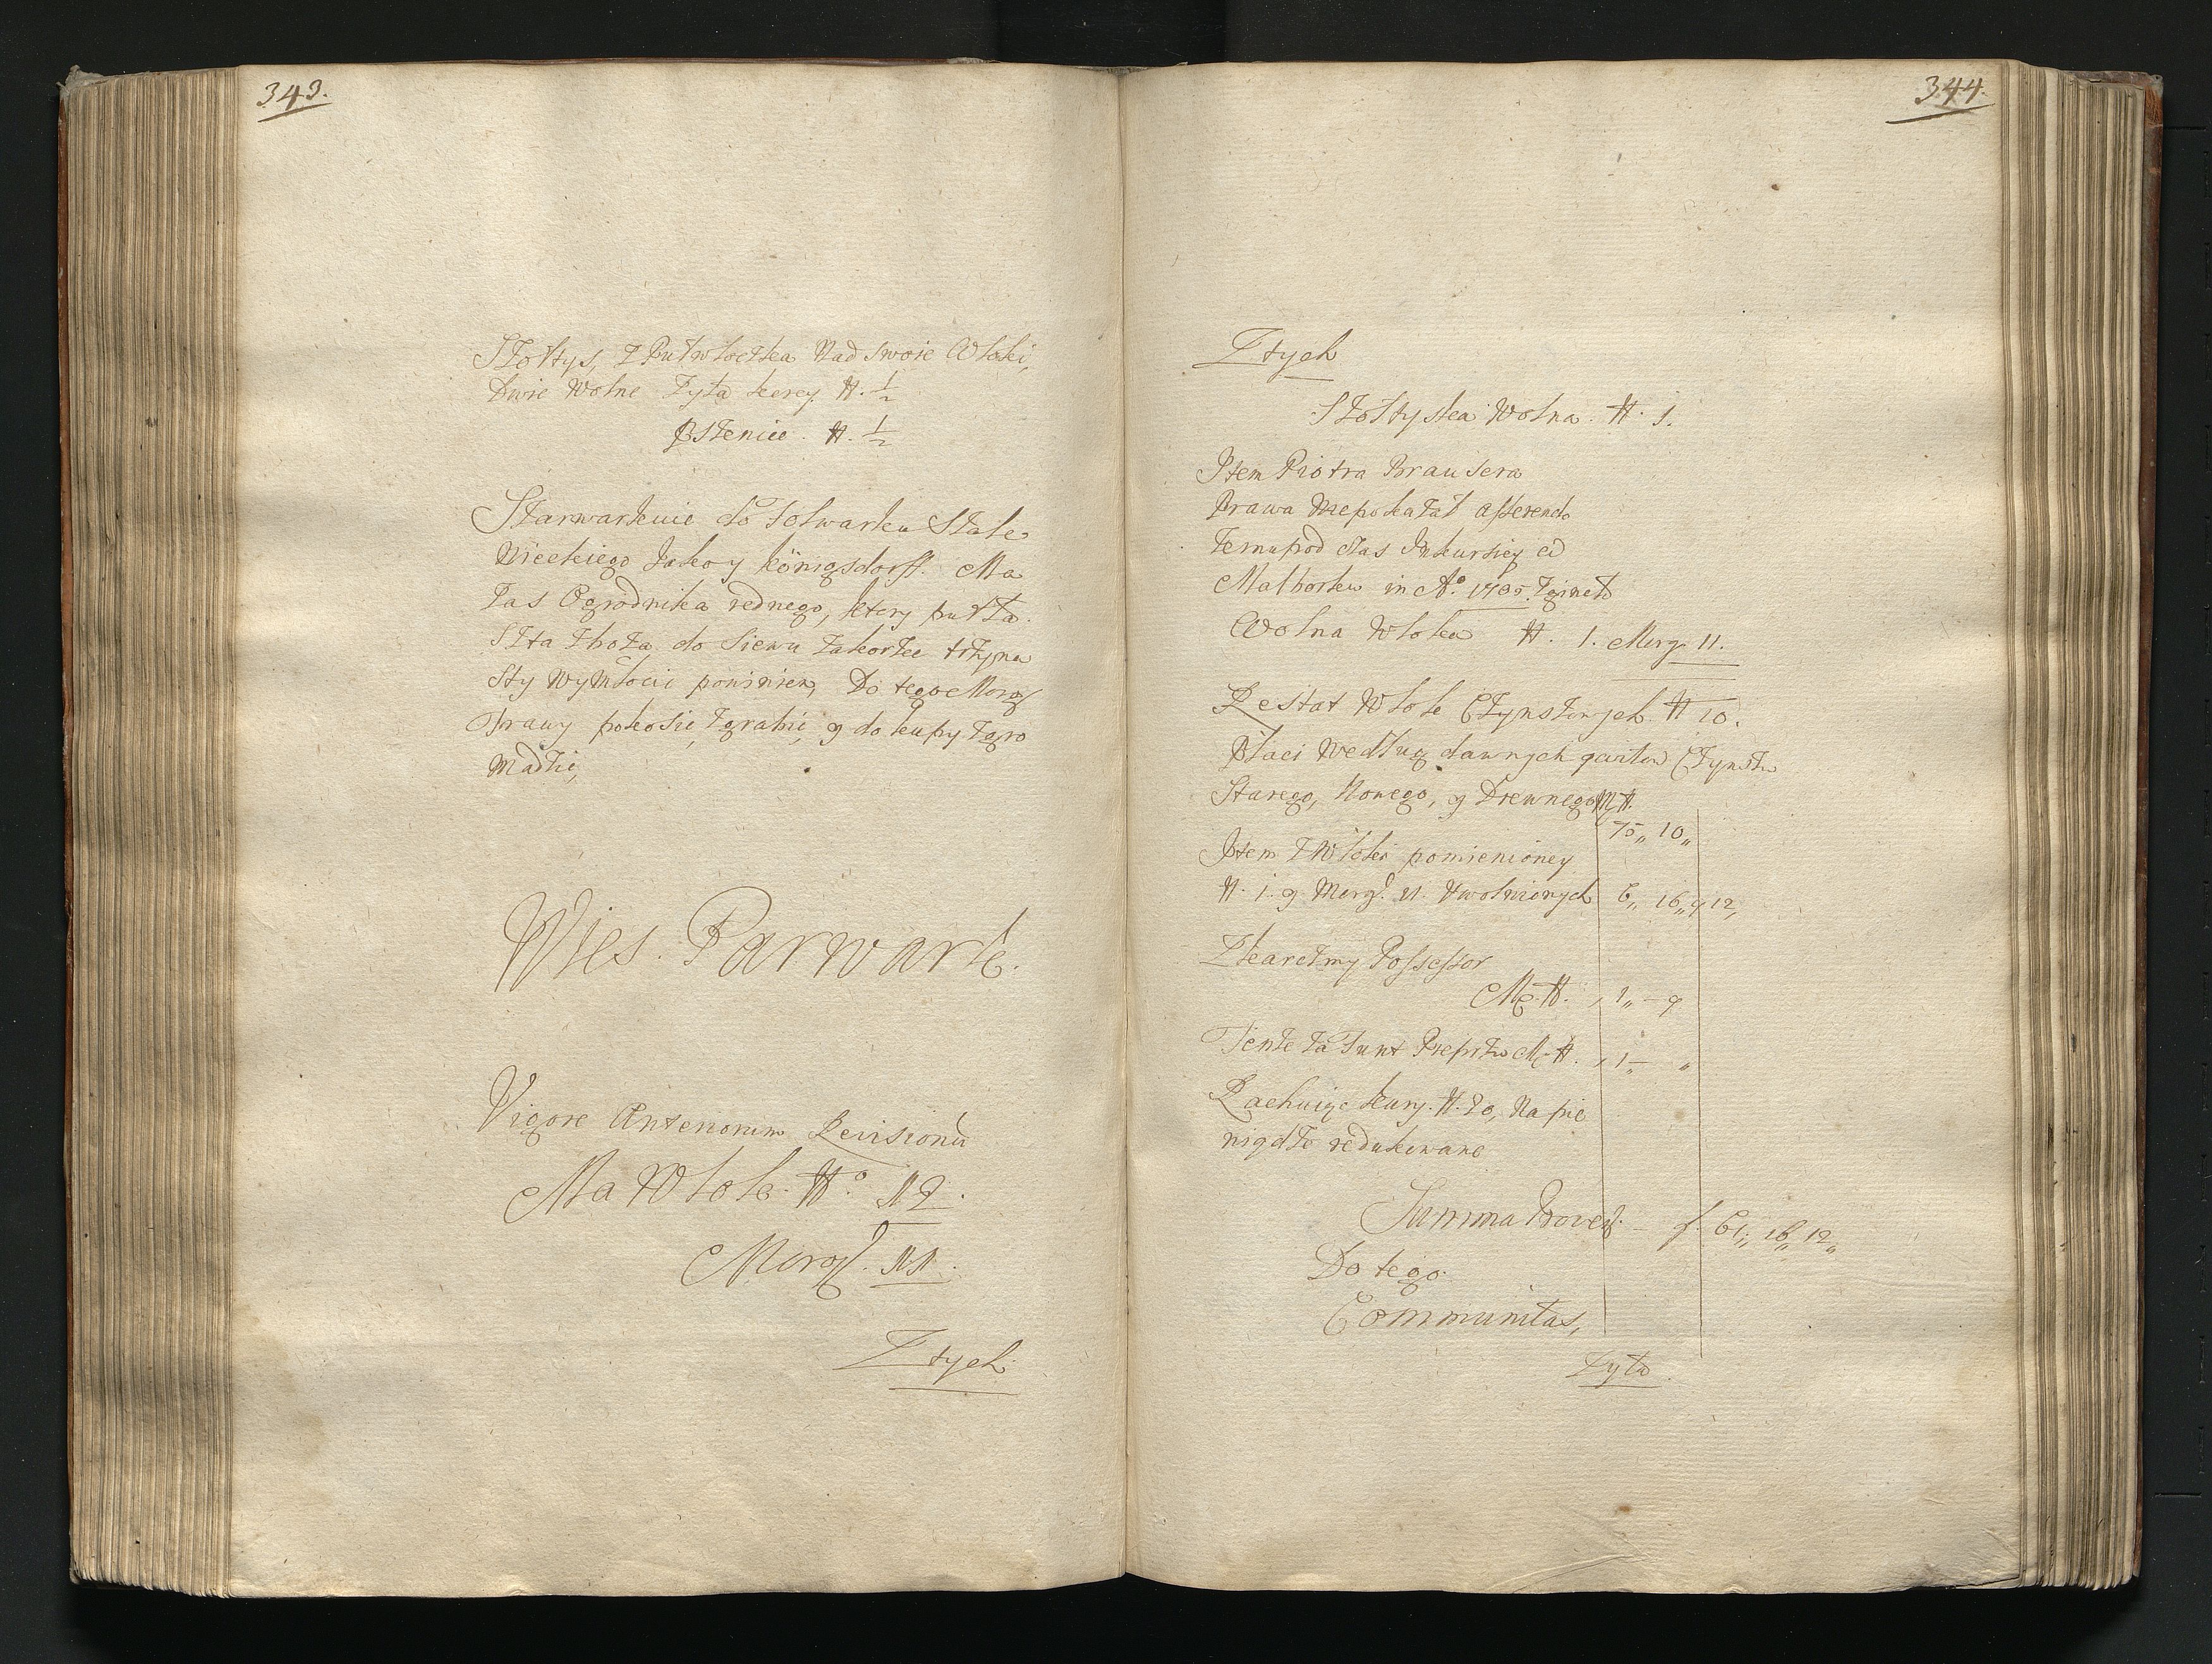 343.
Szołtys, z Pułwłoczka Nad swoie Włoki,
Dwie Wolne Zyta korcy N. 1/2
Pszenice. N. 1/2
Szarwarkuie do Folwarku Stale
Nieckiego Jako y Königsdorff. Ma
Tas Ogrodnika iednego, ktory
Szta Zboża do Siewu za korzec trzyna
sty Wymłocic powinien, Do tego Morg
Trawy pokosic, zgrabic, y do kupy zgro
Madzic,
Wies. Parwark.
Vigore Anteriorum Revisionu
Ma Włok. No 12.
Morg. 11.
Z tych
344.
Z tych
Szołtyska Wolna. N. 1.
Item Piotra Brausera
Prawa Niepokazał asserendo
Ze mu pod czas Inkursiey w
Malborku in Ao. 1705. zgineło
Wolna Włoka N. 1. Morg 11.
Restat Włok Czynszowych N 10.
Płaci Według dawnych qwitow Czynszu
Starego, Nowego, y Drewnego M N.
75,, 10,,
Item z Włoki pomienioney
N. 1. y Morg. 11. Uwolnionych 6,, 16,, 12,
Z karczmy Possessor
M. N. 1,, 9
M. N. 1,,
Rachuiąc kury. N. 20, Na pie
niądze redukowane
Summa Prowent. f. 61,, 16,, 12,,
Do tego
Communitas,
Zyta